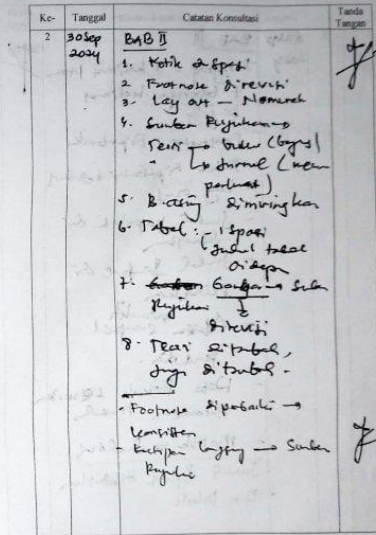 Ke- Tanggal Catatan Konsultasi Tanda Tangan
2 30 Sep 2024 BAB II
1. Ketik 2 Spasi
2. Footnote direvisi
3. Lay out - Nomerah
4. Sumber Rujukan →
Teori → buku (bagus)
" ↳ Jurnal (
)
5. B. asing dimiringkan
6. Tabel : - 1 Spasi
- Judul tabel
didepan
7. Gambar → Sumber
Rujukan
↓
direvisi
8. Teori ditambah,
juga ditambah -
- Footnote diperbaiki →
konsisten
- Kutipan langsung → Sumber
Rujukan